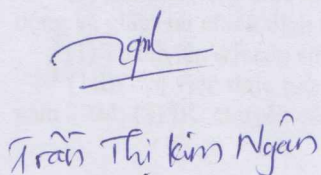 Trần Thị Kim Ngân